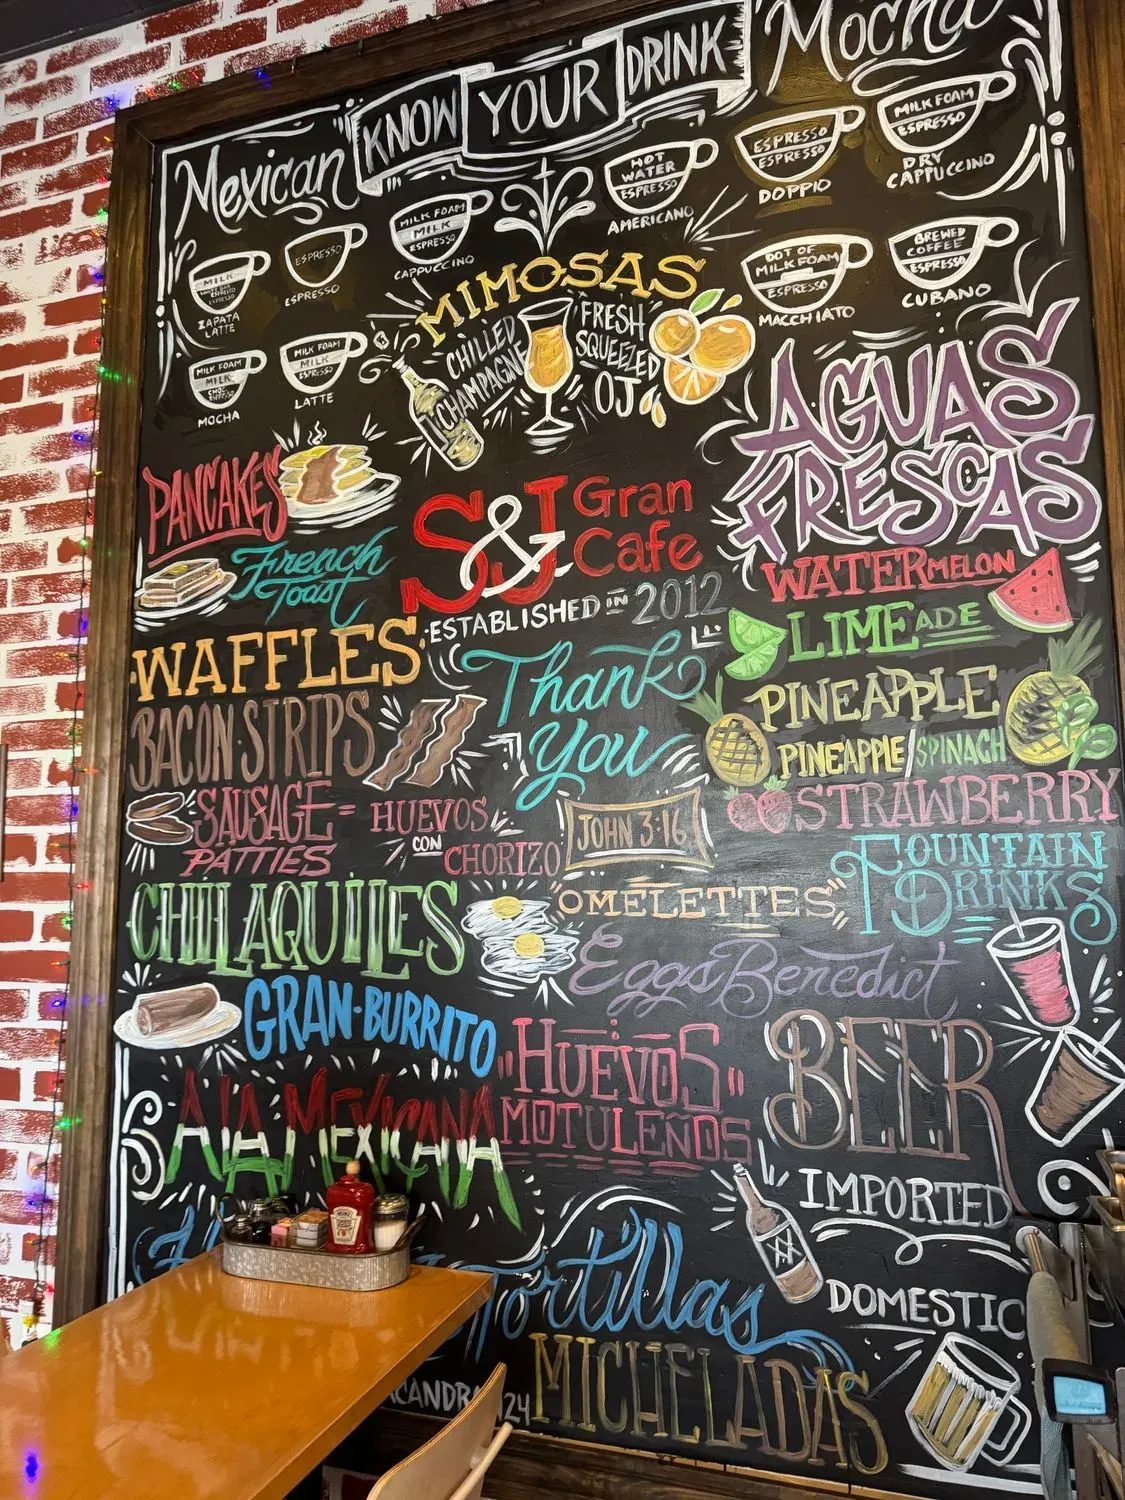 KNOW YOUR DRINK
Mexican
Mocha
MILK FOAM
ESPRESSO
DRY
CAPPUCCINO
ESPRESSO
ESPRESSO
DOPPIO
HOT
WATER
ESPRESSO
AMERICANO
MILK FOAM
MILK
ESPRESSO
CAPPUCCINO
ESPRESSO
ESPRESSO
MILK
ESPRESSO
ZAPATA
LATTE
MILK FOAM
MILK
ESPRESSO
MOCHA
MILK FOAM
MILK
ESPRESSO
LATTE
DOT OF
MILK FOAM
ESPRESSO
MACCHIATO
BREWED
COFFEE
ESPRESSO
CUBANO
MIMOSAS
CHILLED
CHAMPAGNE
FRESH
SQUEEZED
OJ
AGUAS
FRESCAS
WATERMELON
LIMEADE
PINEAPPLE
PINEAPPLE/SPINACH
STRAWBERRY
FOUNTAIN
DRINKS
S&J Gran
Cafe
ESTABLISHED IN 2012
Thank
You
JOHN 3:16
PANCAKES
French
Toast
WAFFLES
BACON STRIPS
SAUSAGE
PATTIES
HUEVOS
CON
CHORIZO
CHILAQUILES
"OMELETTES"
Eggs Benedict
GRAN-BURRITO
"HUEVOS"
MOTULEÑOS
A LA MEXICANA
BEER
IMPORTED
DOMESTIC
XX
Tortillas
MICHELADAS
HEINZ